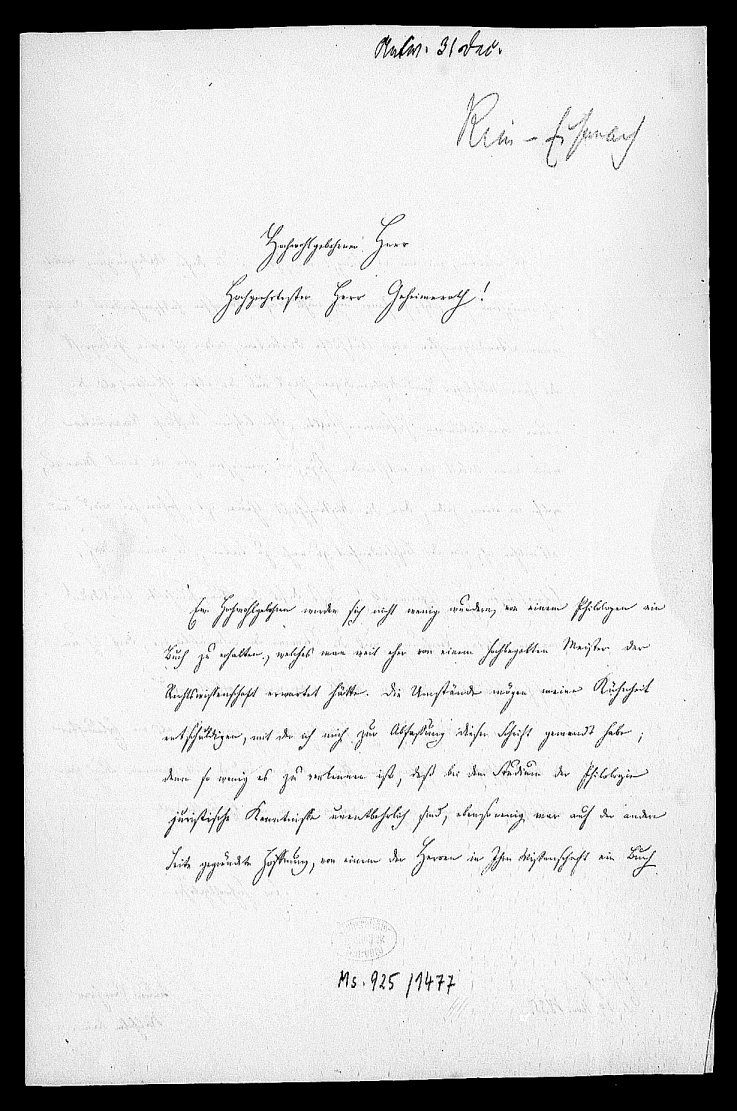 Antw. 31 Dec.
Rein - Eisenach
Hochwohlgeborner Herr
Hochgeehrtester Herr Geheimerath!
Ew. Hochwohlgeboren werden sich nicht wenig wundern, von einem Philologen ein
Buch zu erhalten, welches man weit eher von einem hochbegabten Meister der
Rechtswissenschaft erwartet hätte. Die Umstände mögen meine Kühnheit
entschuldigen, mit der ich mich zur Abfassung dieser Schrift gewandt habe;
denn so wenig es zu verkennen ist, daß bei dem Studium der Philologie
juristische Kenntnisse unentbehrlich sind, ebensowenig war auf der andern
Seite gegründete Hoffnung, von einem der Herren in Ihrer Wissenschaft ein Buch
Ms. 925/1477